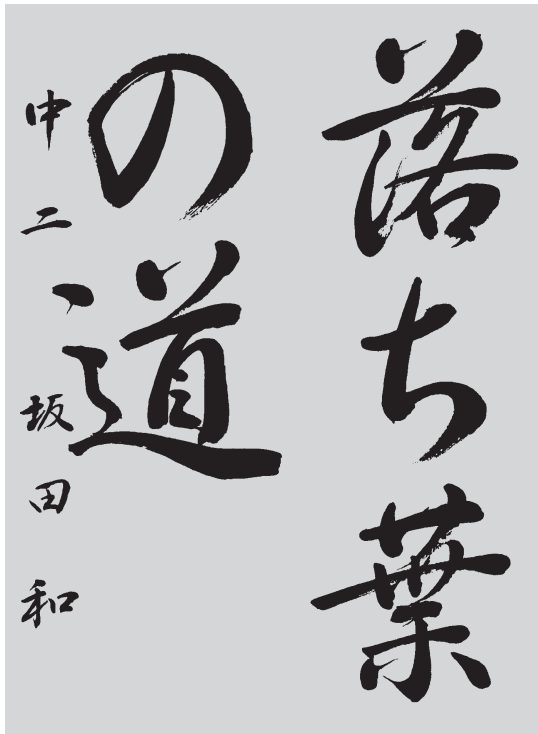 落ち葉
の道
中二 坂田 和